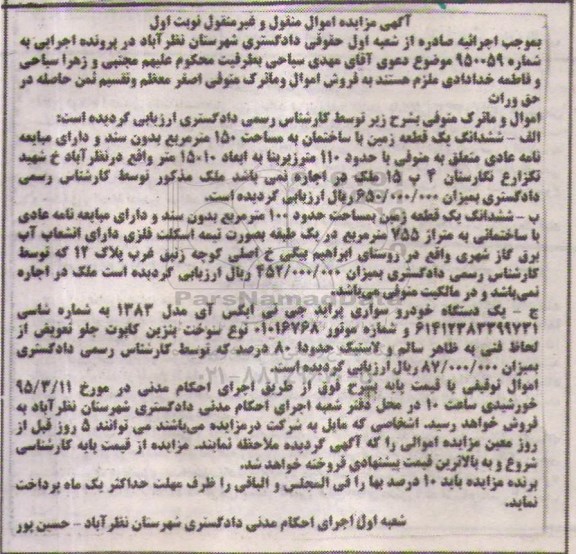 آگهی مزایده اموال منقول و غیرمنقول نوبت اول
بموجب اجرائیه صادره از شعبه اول حقوقی دادگستری شهرستان نظرآباد در پرونده اجرایی به
شماره ۹۵۰۰۵۹ موضوع دعوی آقای مهدی سیاحی بطرفیت محکوم علیهم مجتبی و زهرا سیاحی
و فاطمه خدادادی ملزم هستند به فروش اموال وماترک متوفی اصغر معظم وتقسیم ثمن حاصله در
حق وراث
اموال و ماترک متوفی بشرح زیر توسط کارشناس رسمی دادگستری ارزیابی گردیده است:
الف - ششدانگ یک قطعه زمین با ساختمان به مساحت ۱۵۰ مترمربع بدون سند و دارای مبایعه
نامه عادی متعلق به متوفی با حدود ۱۱۰ مترزیربنا به ابعاد ۱۰-۱۵ متر واقع درنظرآباد خ شهید
تکزارع نگارستان ۴ پ ۱۵ ملک در اجاره نمی باشد ملک مذکور توسط کارشناس رسمی
دادگستری بمیزان ۶۵۰/۰۰۰/۰۰۰ ریال ارزیابی گردیده است.
ب - ششدانگ یک قطعه زمین بمساحت حدود ۱۰۰ مترمربع بدون سند و دارای مبایعه نامه عادی
با ساختمانی به متراژ ۷۵۵ مترمربع در یک طبقه بصورت نیمه اسکلت فلزی دارای انشعاب آب
برق گاز شهری واقع در روستای ابراهیم بیگی خ اصلی کوچه زنبق غرب پلاک ۱۲ که توسط
کارشناس رسمی دادگستری بمیزان ۴۵۲/۰۰۰/۰۰۰ ریال ارزیابی گردیده است ملک در اجاره
نمی‌باشد و در مالکیت متوفی می‌باشد.
ج - یک دستگاه خودرو سواری پراید جی تی ایکس آی مدل ۱۳۸۳ به شماره شاسی
۶۱۴۱۲۳۸۳۳۹۹۷۳۱ و شماره موتور ۰۱۰۱۶۷۶۸ نوع سوخت بنزین کاپوت جلو تعویض از
لحاظ فنی به ظاهر سالم و لاستیک حدودا ۸۰ درصد که توسط کارشناس رسمی دادگستری
بمیزان ۸۷/۰۰۰/۰۰۰ ریال ارزیابی گردیده است.
اموال توقیفی با قیمت پایه بشرح فوق از طریق اجرای احکام مدنی در مورخ ۹۵/۳/۱۱
خورشیدی ساعت ۱۰ در محل دفتر شعبه اجرای احکام مدنی دادگستری شهرستان نظرآباد به
فروش خواهد رسید. اشخاصی که مایل به شرکت درمزایده می‌باشند می توانند ۵ روز قبل از
روز معین مزایده اموالی را که آگهی گردیده ملاحظه نمایند. مزایده از قیمت پایه کارشناسی
شروع و به بالاترین قیمت پیشنهادی فروخته خواهد شد.
برنده مزایده باید ۱۰ درصد بها را فی المجلس و الباقی را ظرف مهلت حداکثر یک ماه پرداخت
نماید.
شعبه اول اجرای احکام مدنی دادگستری شهرستان نظرآباد - حسین پور